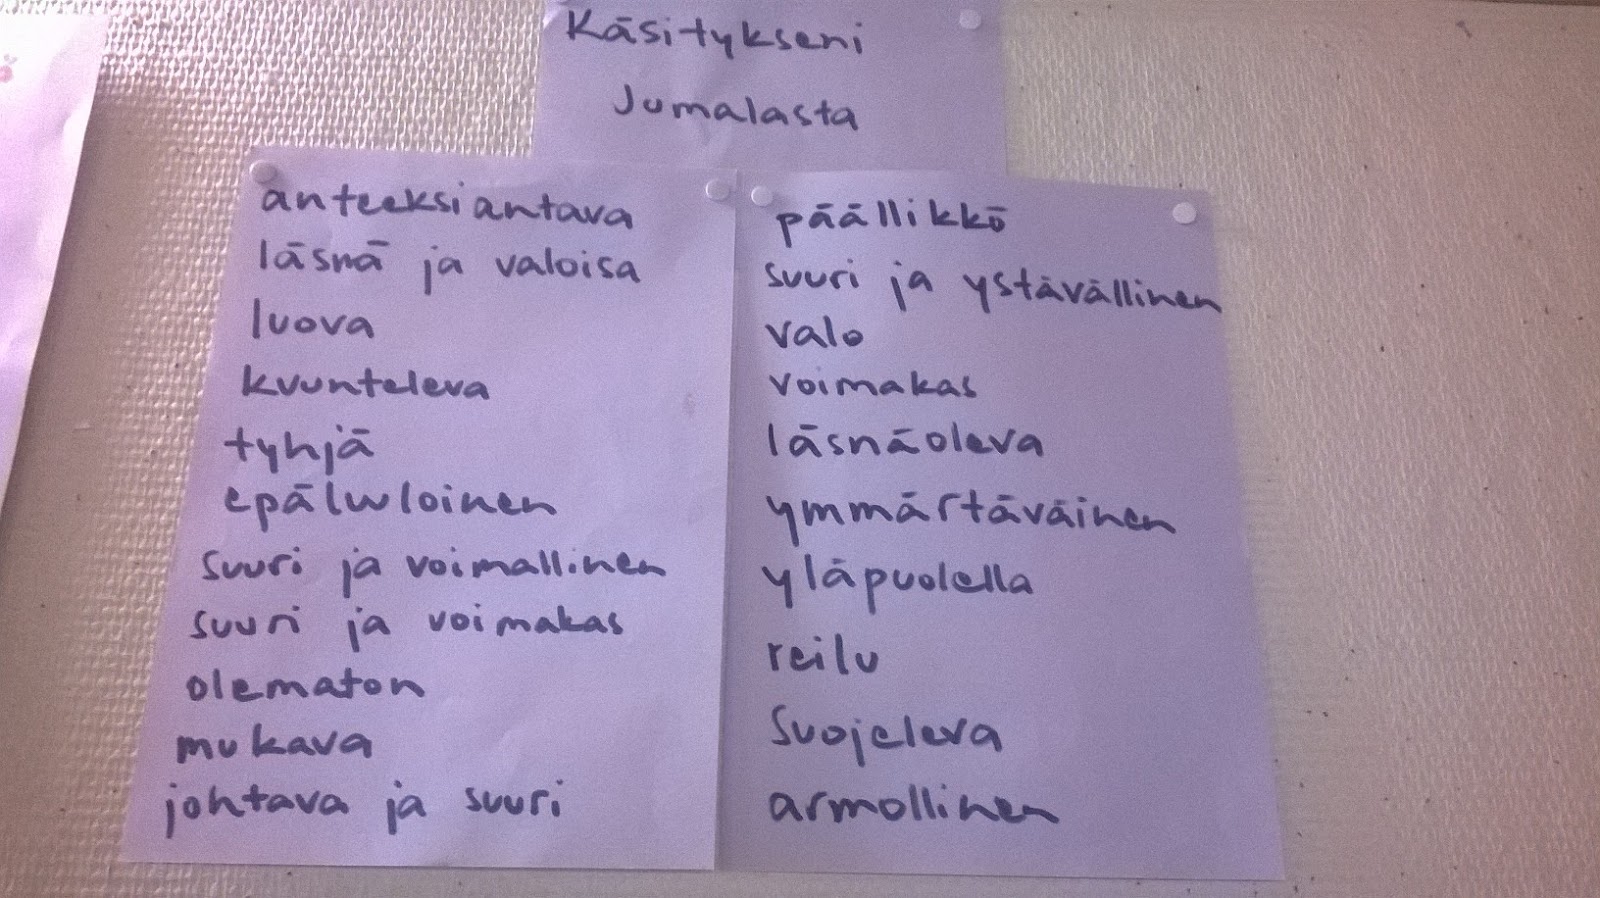 Käsitykseni
Jumalasta
anteeksiantava
läsnä ja valoisa
luova
kuunteleva
tyhjä
epäluuloinen
suuri ja voimallinen
suuri ja voimakas
olematon
mukava
johtava ja suuri
päällikkö
suuri ja ystävällinen
valo
voimakas
läsnäoleva
ymmärtäväinen
yläpuolella
reilu
suojeleva
armollinen